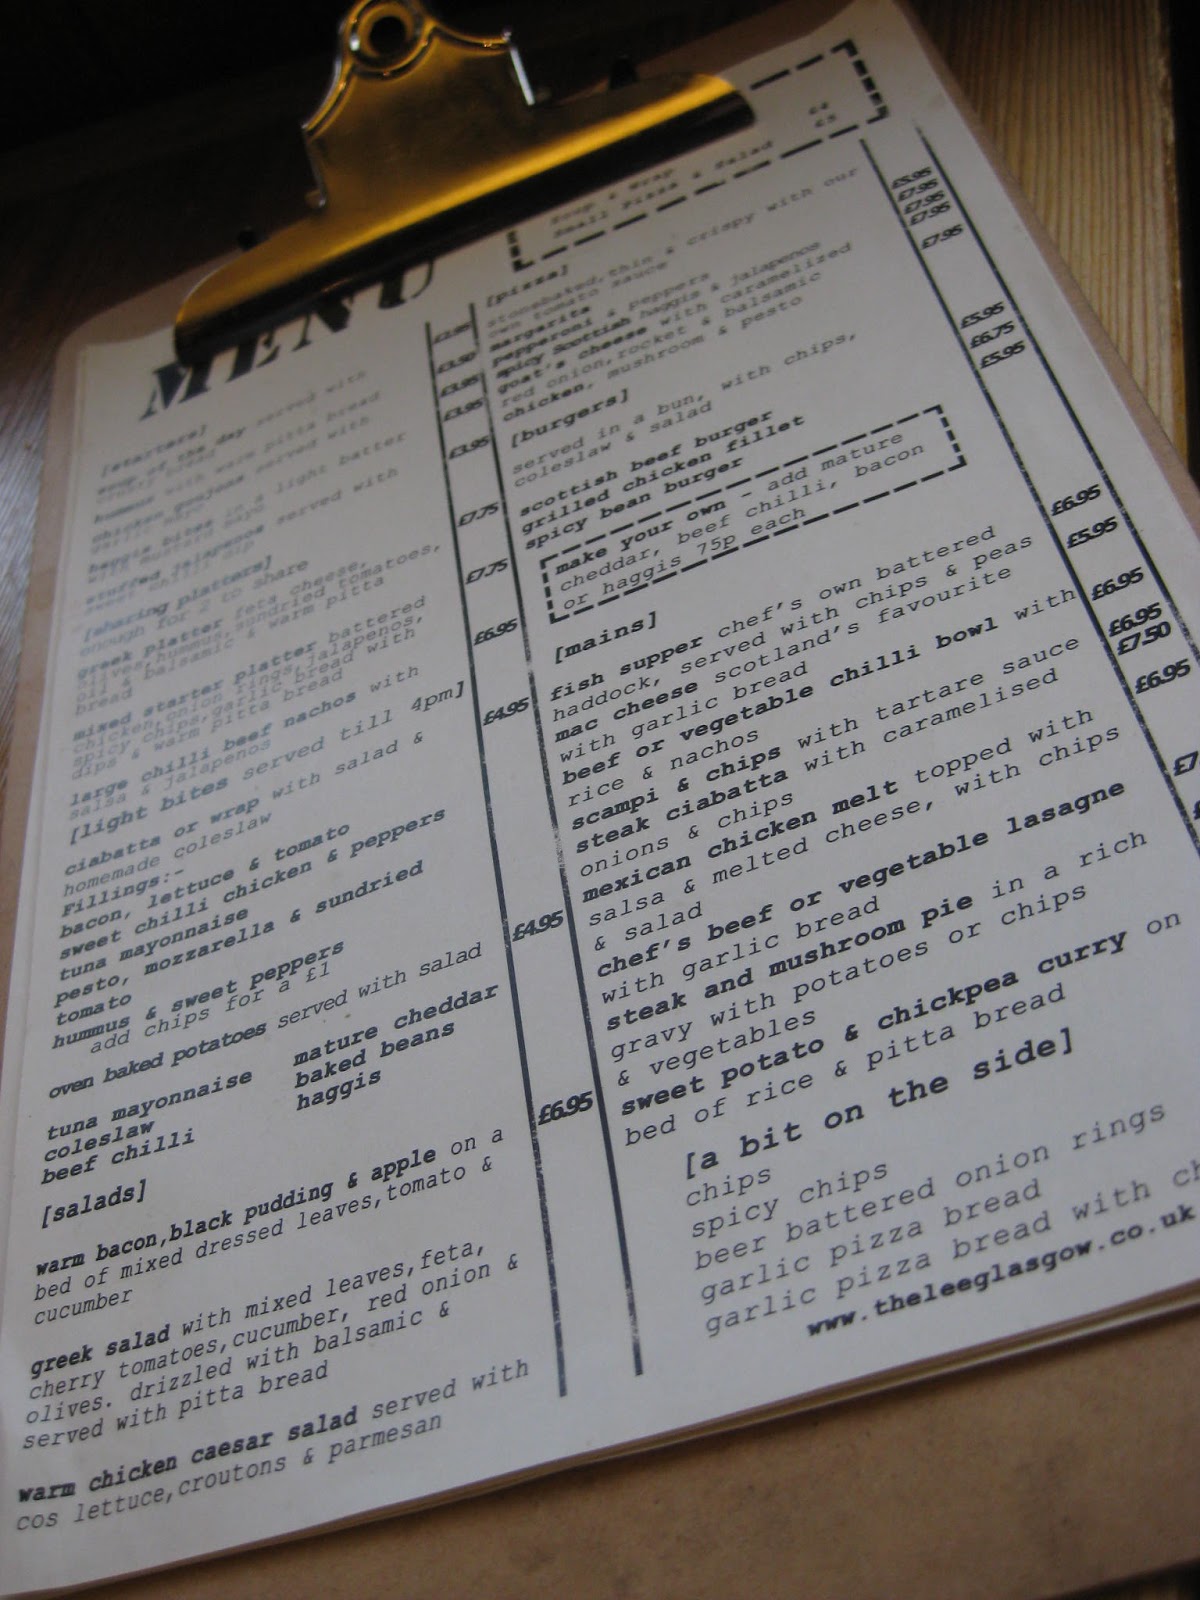 MENU
[starters]
soup of the day served with
crusty bread £2.95
hummus with warm pitta bread £3.50
chicken goujons served with
garlic mayo £3.95
haggis bites in a light batter
with mustard mayo £3.95
stuffed jalapenos served with
sweet chilli dip £3.95
[sharing platters]
enough for 2 to share
greek platter feta cheese, £7.75
olives,hummus,sundried tomatoes,
oil & balsamic & warm pitta
bread
mixed starter platter battered £7.75
chicken,onion rings,jalapenos,
spicy chips,garlic bread with
dips & warm pitta bread
large chilli beef nachos with £6.95
salsa & jalapenos
[light bites served till 4pm]
ciabatta or wrap with salad & £4.95
homemade coleslaw
Fillings:-
bacon, lettuce & tomato
sweet chilli chicken & peppers
tuna mayonnaise
pesto, mozzarella & sundried
tomato
hummus & sweet peppers
add chips for a £1
oven baked potatoes served with salad £4.95
tuna mayonnaise mature cheddar
coleslaw baked beans
beef chilli haggis
[salads]
warm bacon,black pudding & apple on a £6.95
bed of mixed dressed leaves,tomato &
cucumber
greek salad with mixed leaves,feta,
cherry tomatoes,cucumber, red onion &
olives. drizzled with balsamic &
served with pitta bread
warm chicken caesar salad served with
cos lettuce,croutons & parmesan
Soup & Wrap £4
Small Pizza & Salad £5
[pizza]
stonebaked,thin & crispy with our
own tomato sauce
margarita £5.95
pepperoni & peppers £7.95
spicy Scottish haggis & jalapenos £7.95
goat's cheese with caramelized £7.95
red onion,rocket & balsamic
chicken, mushroom & pesto £7.95
[burgers]
served in a bun, with chips,
coleslaw & salad
scottish beef burger £5.95
grilled chicken fillet £6.75
spicy bean burger £5.95
make your own - add mature
cheddar, beef chilli, bacon
or haggis 75p each
[mains]
fish supper chef's own battered £6.95
haddock, served with chips & peas
mac cheese scotland's favourite £5.95
with garlic bread
beef or vegetable chilli bowl with £6.95
rice & nachos
scampi & chips with tartare sauce £6.95
steak ciabatta with caramelised £7.50
onions & chips
mexican chicken melt topped with £6.95
salsa & melted cheese, with chips
& salad
chef's beef or vegetable lasagne £7
with garlic bread
steak and mushroom pie in a rich £
gravy with potatoes or chips
& vegetables
sweet potato & chickpea curry on
bed of rice & pitta bread
[a bit on the side]
chips
spicy chips
beer battered onion rings
garlic pizza bread
garlic pizza bread with ch
www.theleeglasgow.co.uk